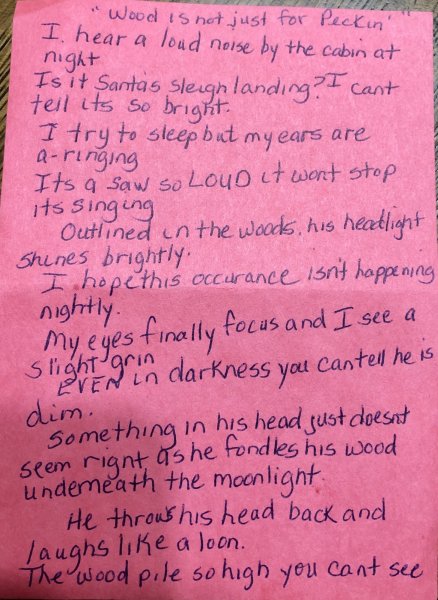 "Wood is not just for Peckin'"
I hear a loud noise by the cabin at
night
Is it Santas Sleigh landing? I cant
tell its so bright.
I try to sleep but my ears are
a-ringing
Its a saw so LOUD it wont stop
its singing
Outlined in the woods, his headlight
shines brightly.
I hope this occurance isn't happening
nightly.
My eyes finally focus and I see a
slight grin
EVEN in darkness you can tell he is
dim.
Something in his head just doesnt
seem right as he fondles his wood
underneath the moonlight.
He throws his head back and
laughs like a loon.
The wood pile so high you cant see